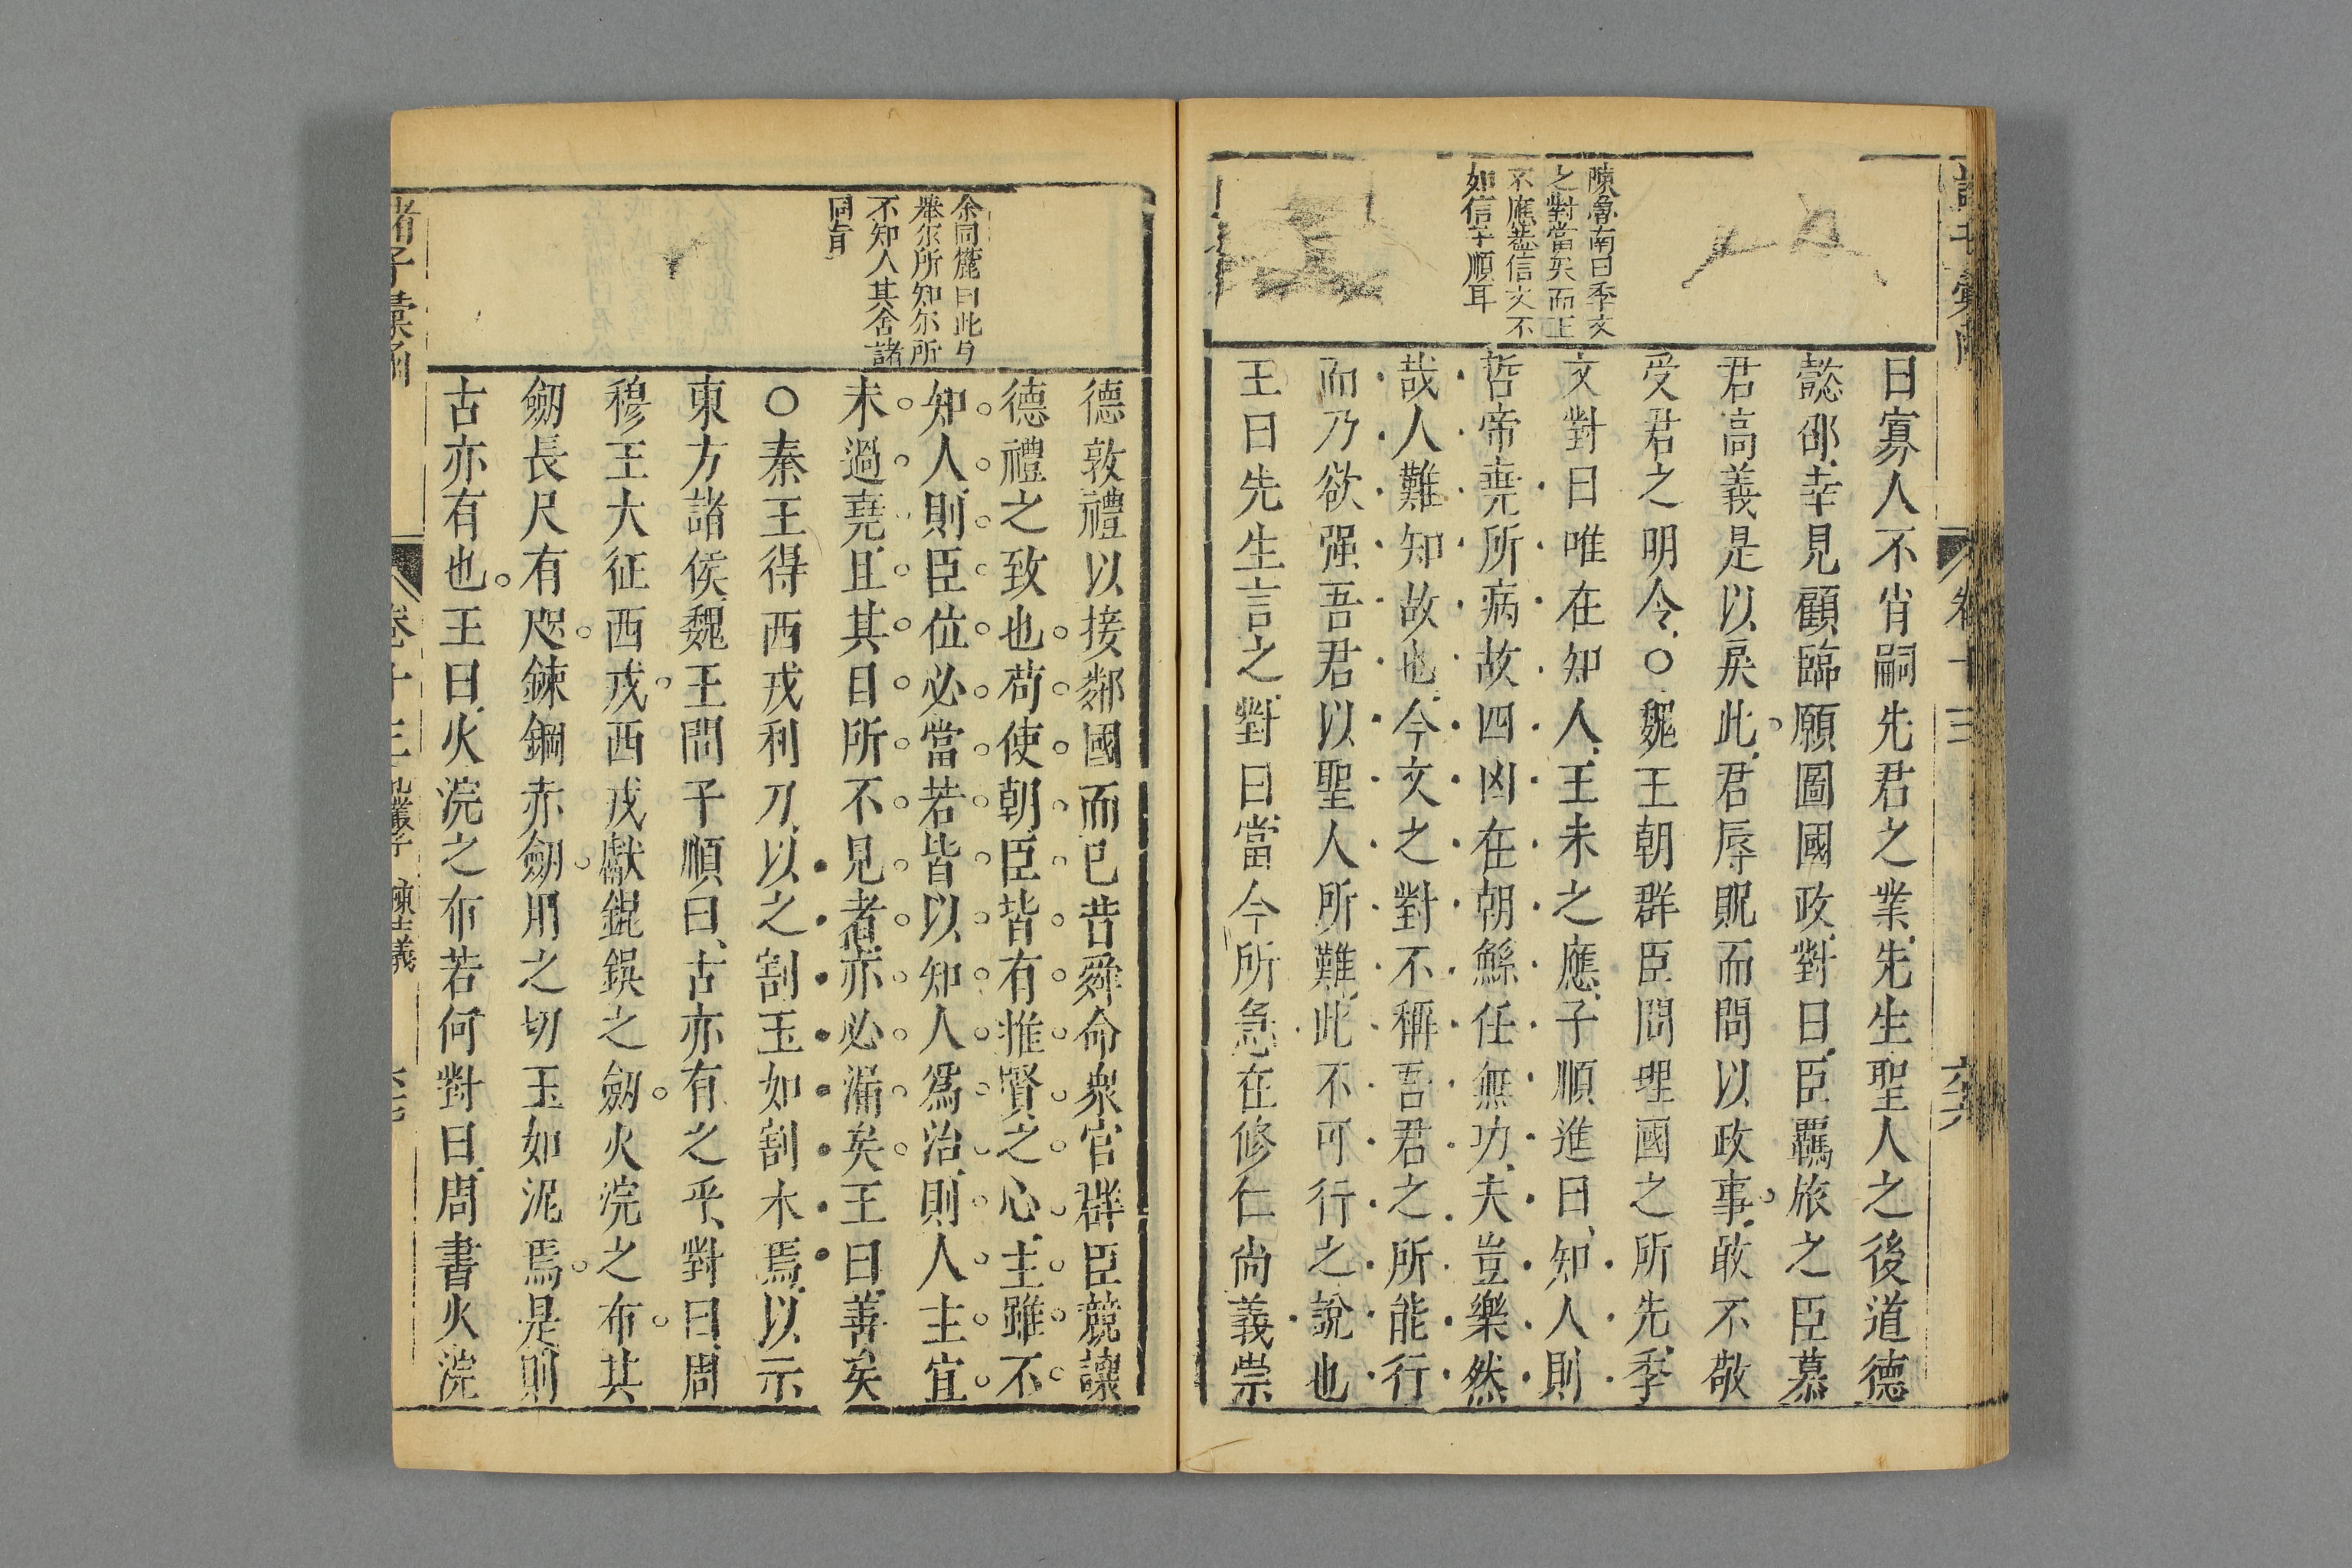 卷十三
六十六
陳魯南曰季文
之對當矣而正
不應恭信文不
如信子順耳
曰寡人不肖嗣先君之業先生聖人之後道德
懿邵幸見顧臨願圖國政對曰臣羈旅之臣慕
君高義是以戾此君辱貺而問以政事敢不敬
受君之明令○魏王朝群臣問理國之所先季
文對曰唯在知人王未之應子順進曰知人則
哲帝堯所病故四凶在朝鯀任無功夫豈樂然
哉人難知故也今文之對不稱吾君之所能行
而乃欲强吾君以聖人所難此不可行之說也
王曰先生言之對曰當今所急在修仁尚義崇
余同麓曰此與
舉尔所知尔所
不知人其舍諸
同旨
德敦禮以接鄰國而已昔舜命衆官群臣競讓
德禮之致也苟使朝臣皆有推賢之心主雖不
知人則臣位必當若皆以知人爲治則人主宜
未過堯且其目所不見者亦必漏矣王曰善矣
○秦王得西戎利刀以之割玉如割木焉以示
東方諸侯魏王問子順曰古亦有之乎對曰周
穆王大征西戎西戎獻錕鋘之劒火浣之布其
劒長尺有咫鍊鋼赤劒用之切玉如泥焉是則
古亦有也王曰火浣之布若何對曰周書火浣
諸子彙函
卷十三 孔叢子 陳士義
六十七